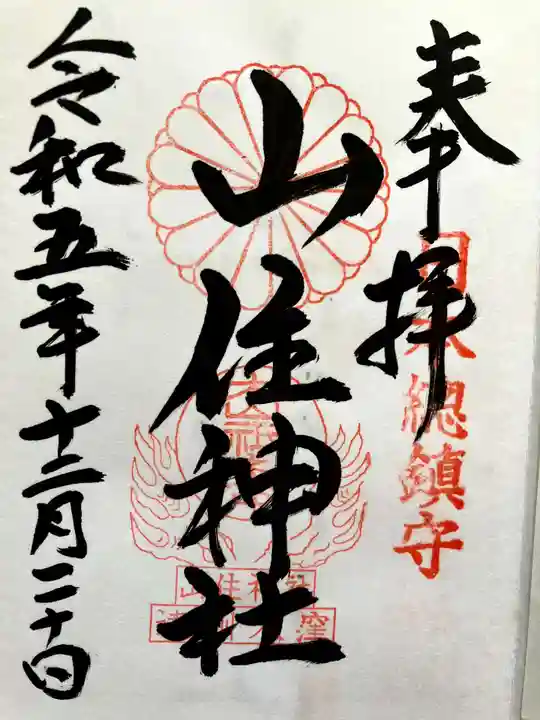 奉拝
日本総鎮守
山住神社
山住神社
令和五年十二月二十日